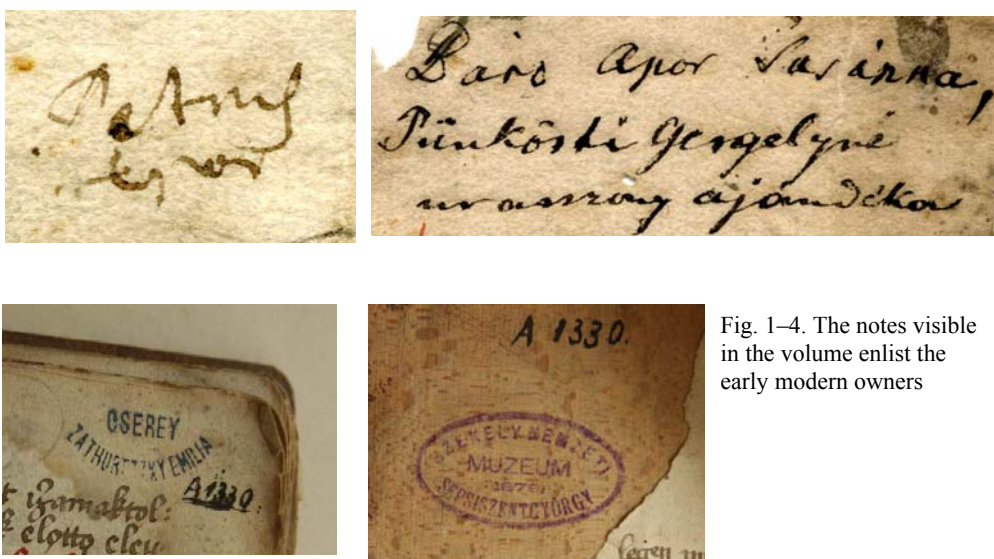 Báró Apor Susánna,
Pünkösti Gergelyné
ur asszony ajándéka
CSEREY
ZATHURECZKY EMILIA
A 1330.
izamaktol:
elotto elet
A 1330.
SZÉKELY NEMZETI
MUZEUM
1879
SEPSISZENTGYÖRGY
Fig. 1–4. The notes visible
in the volume enlist the
early modern owners